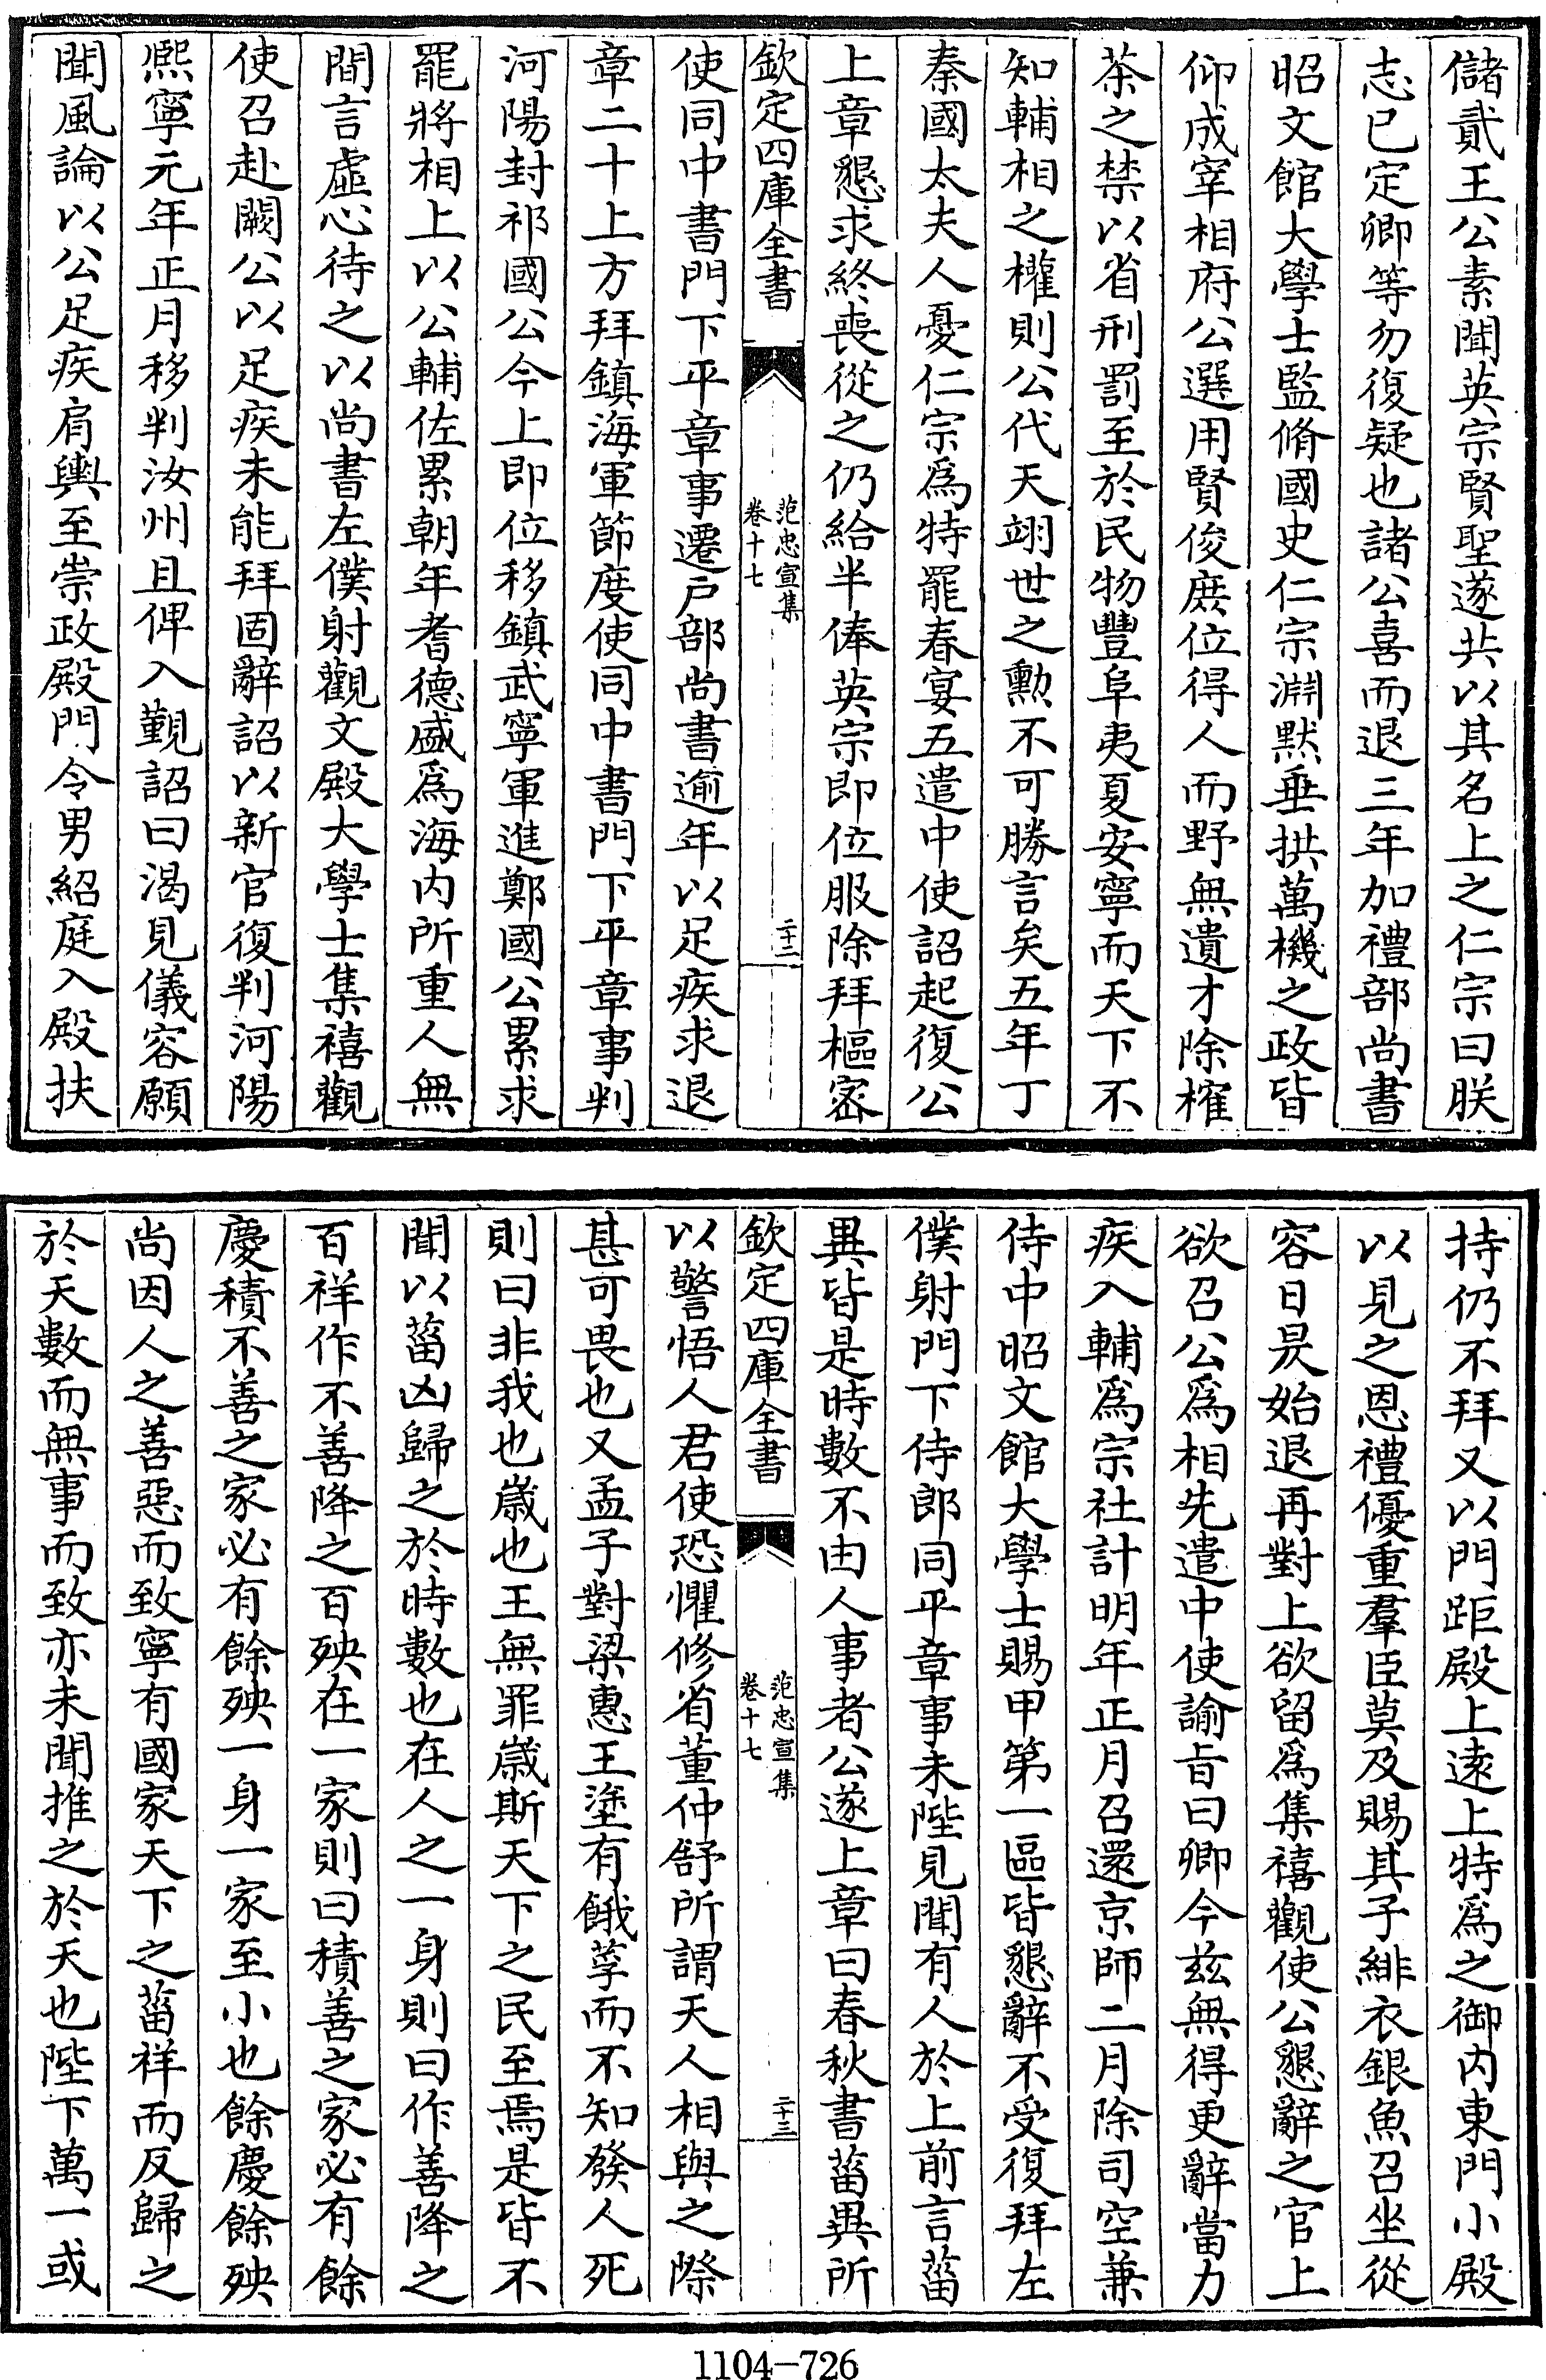 儲貳王公素聞英宗賢聖遂共以其名上之仁宗曰朕
志已定卿等勿復疑也諸公喜而退三年加禮部尚書
昭文館大學士監脩國史仁宗淵黙垂拱萬機之政皆
仰成宰相府公選用賢俊庶位得人而野無遺才除榷
茶之禁以省刑罰至於民物豐阜夷夏安寧而天下不
知輔相之權則公代天翊世之勲不可勝言矣五年丁
秦國太夫人憂仁宗為特罷春宴五遣中使詔起復公
上章懇求終喪從之仍給半俸英宗即位服除拜樞密
欽定四庫全書
范忠宣集
卷十七
二十二
使同中書門下平章事遷戶部尚書逾年以足疾求退
章二十上方拜鎮海軍節度使同中書門下平章事判
河陽封祁國公今上即位移鎮武寧軍進鄭國公累求
罷將相上以公輔佐累朝年耆德盛為海内所重人無
間言虛心待之以尚書左僕射觀文殿大學士集禧觀
使召赴闕公以足疾未能拜固辭詔以新官復判河陽
熈寧元年正月移判汝州且俾入覲詔曰渴見儀容願
聞風論以公足疾肩輿至崇政殿門令男紹庭入殿扶
持仍不拜又以門距殿上逺上特為之御内東門小殿
以見之恩禮優重羣臣莫及賜其子緋衣銀魚召坐從
容日昃始退再對上欲留為集禧觀使公懇辭之官上
欲召公為相先遣中使諭旨曰卿今兹無得更辭當力
疾入輔為宗社計明年正月召還京師二月除司空兼
侍中昭文館大學士賜甲第一區皆懇辭不受復拜左
僕射門下侍郎同平章事未陛見聞有人於上前言菑
異皆是時數不由人事者公遂上章曰春秋書菑異所
欽定四庫全書
范忠宣集
卷十七
二十三
以警悟人君使恐懼修省董仲舒所謂天人相與之際
甚可畏也又孟子對梁惠王塗有餓莩而不知發人死
則曰非我也嵗也王無罪嵗斯天下之民至焉是皆不
聞以菑凶歸之於時數也在人之一身則曰作善降之
百祥作不善降之百殃在一家則曰積善之家必有餘
慶積不善之家必有餘殃一身一家至小也餘慶餘殃
尚因人之善惡而致寧有國家天下之菑祥而反歸之
於天數而無事而致亦未聞推之於天也陛下萬一或
1104-726